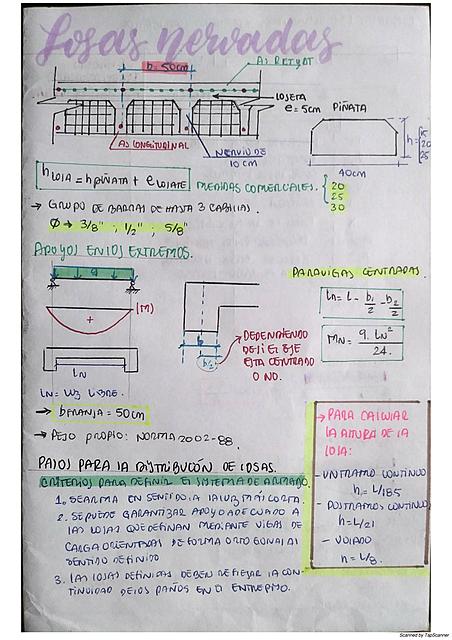 Losas nervadas
b = 50cm
As RETYCT
LOSETA
e = 5cm
PIÑATA
h = 15
20
25
As LONGITUDINAL
NERVIO DE
10 cm
40cm
hLOSA = hPIÑATA + eLOSETA
MEDIDAS COMERCIALES.
20
25
30
→ GRUPO DE BARRAS DE HASTA 3 CABILLAS.
Ø → 3/8" ; 1/2" ; 5/8"
APOYOS EN LOS EXTREMOS.
PARA VIGAS CENTRADAS.
q
(M)
+
Ln = L - b1/2 - b2/2
Mn = q. Ln² / 24.
b
b/2
DEPENDIENDO
DE SI EL EJE
ESTA CENTRADO
O NO.
LN
LN = LUZ LIBRE.
→ bFRANJA = 50cm
→ PESO PROPIO: NORMA 2002-88.
→ PARA CALCULAR
LA ALTURA DE LA
LOSA:
- UN TRAMO CONTINUO
h = L/18.5
- DOS TRAMOS CONTINUO
h = L/21
- VOLADO
h = L/8.
PASOS PARA LA DISTRIBUCIÓN DE LOSAS.
CRITERIOS PARA DEFINIR EL SISTEMA DE ARMADO.
1. SE ARMA EN SENTIDO LA LUZ MÁS CORTA.
2. SE PUEDE GARANTIZAR APOYO ADECUADO A
LAS LOSAS QUE DEFINAN MEDIANTE VIGAS DE
CARGA ORIENTADAS DE FORMA ORTOGONAL AL
SENTIDO DEFINIDO
3. LAS LOSAS DEFINIDAS DEBEN REFLEJAR LA CON-
TINUIDAD DE LOS PAÑOS EN EL ENTREPISO.
Scanned by TapScanner